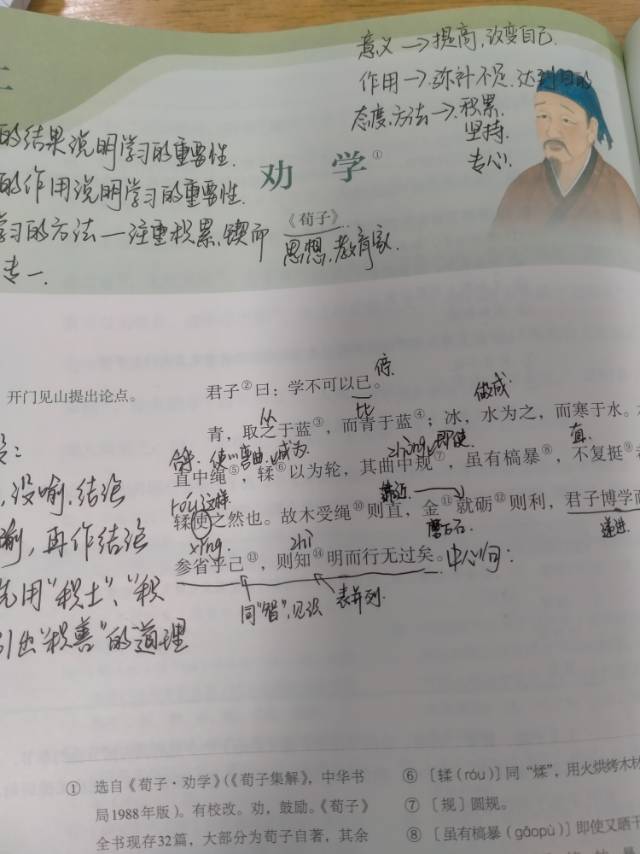 意义→提高、改变自己
作用→弥补不足、达到目的
态度、方法→积累
坚持
专心
的结果说明学习的重要性.
的作用说明学习的重要性.
学习的方法—注重积累、锲而
专一.
劝 学①
《荀子》
思想、教育家.
开门见山提出论点。
停
君子②曰：学不可以已。
从
比
做成
青，取之于蓝③，而青于蓝④；冰，水为之，而寒于水。
合乎
使 弯曲
成为
zhòng
即使
直
直中绳⑤，𫐓⑥以为轮，其曲中规⑦，虽有槁暴⑧，不复挺⑨者
róu
这样
靠近
𫐓使之然也。故木受绳⑩则直，金⑪就砺⑫则利，君子博学而
xǐng
zhì
磨刀石
递进
参省乎己⑬，则知⑭明而行无过矣。
中心句：
同“智”，见识
表并列.
，设喻，结论
喻，再作结论
先用“积土”、“积
引出“积善”的道理
① 选自《荀子·劝学》（《荀子集解》，中华书
局1988年版）。有校改。劝，鼓励。《荀子》
全书现存32篇，大部分为荀子自著，其余
⑥〔𫐓（róu）〕同“煣”，用火烘烤木材
⑦〔规〕圆规。
⑧〔虽有槁暴（gǎopù）〕即使又晒干